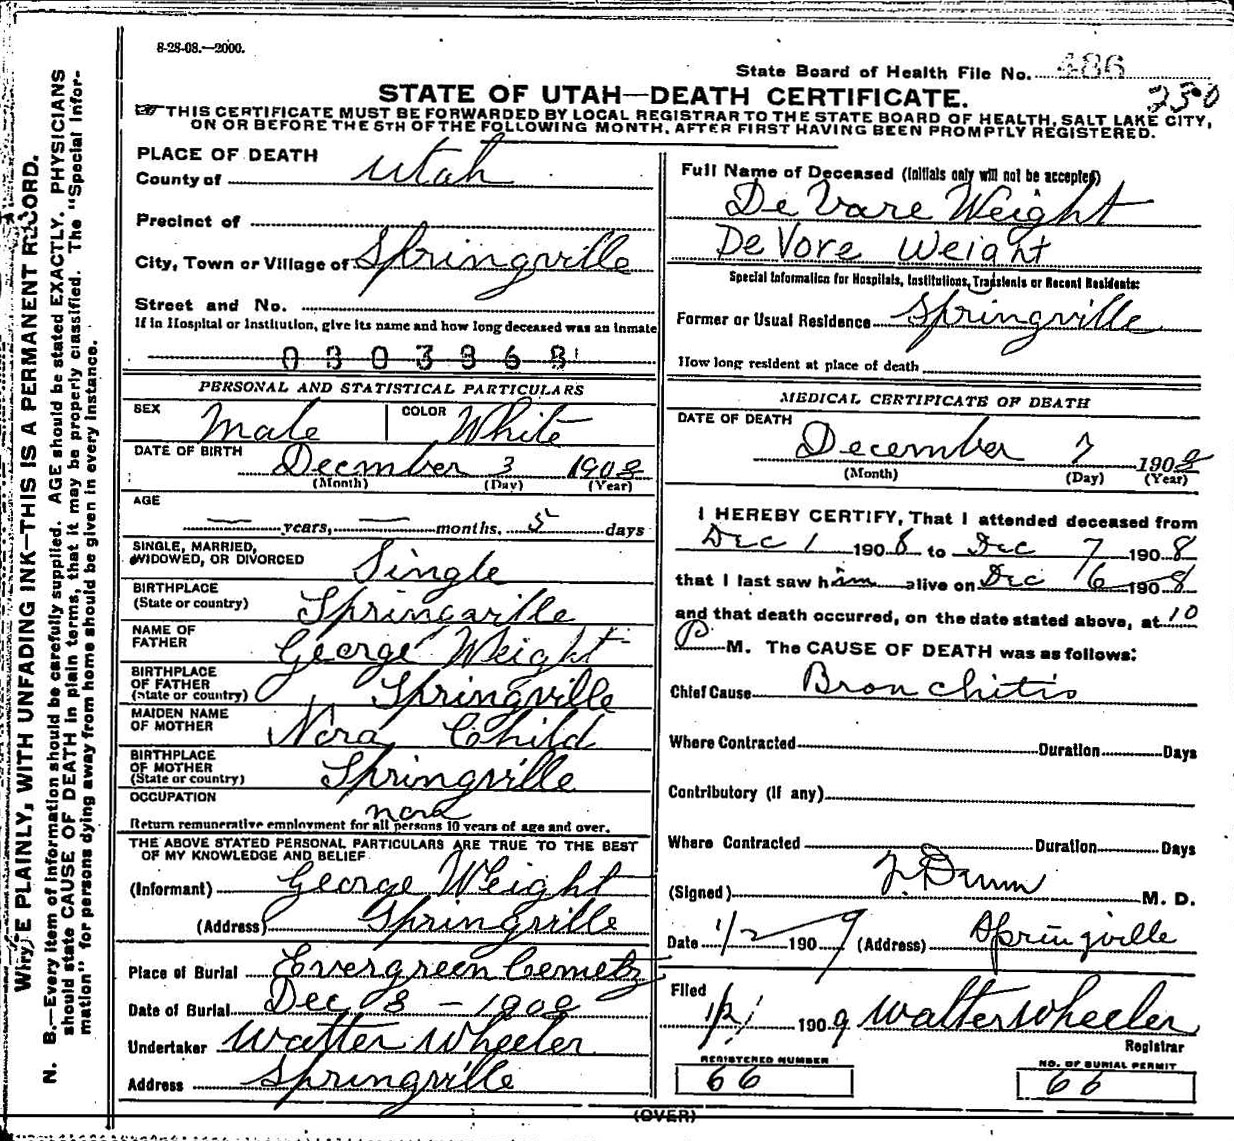 8-28-08.—2000.
State Board of Health File No. 486
230
STATE OF UTAH—DEATH CERTIFICATE.
THIS CERTIFICATE MUST BE FORWARDED BY LOCAL REGISTRAR TO THE STATE BOARD OF HEALTH, SALT LAKE CITY,
ON OR BEFORE THE 5TH OF THE FOLLOWING MONTH, AFTER FIRST HAVING BEEN PROMPTLY REGISTERED.
WRITE PLAINLY, WITH UNFADING INK—THIS IS A PERMANENT RECORD.
N. B.—Every item of information should be carefully supplied. AGE should be stated EXACTLY. PHYSICIANS
should state CAUSE OF DEATH in plain terms, that it may be properly classified. The "Special Infor-
mation" for persons dying away from home should be given in every instance.
PLACE OF DEATH
County of Utah
Precinct of
City, Town or Village of Springville
Street and No.
If in Hospital or Institution, give its name and how long deceased was an inmate
0303968
PERSONAL AND STATISTICAL PARTICULARS
SEX Male COLOR White
DATE OF BIRTH Decmber 3 1908
(Month) (Day) (Year)
AGE
— years, — months, 5 days
SINGLE, MARRIED,
WIDOWED, OR DIVORCED Single
BIRTHPLACE
(State or country) Springville
NAME OF
FATHER George Weight
BIRTHPLACE
OF FATHER
(State or country) Springville
MAIDEN NAME
OF MOTHER Nora Child
BIRTHPLACE
OF MOTHER
(State or country) Springville
OCCUPATION
Return remunerative employment for all persons 10 years of age and over.
THE ABOVE STATED PERSONAL PARTICULARS ARE TRUE TO THE BEST
OF MY KNOWLEDGE AND BELIEF
(Informant) George Weight
(Address) Springville
Place of Burial Evergreen Cemetz
Date of Burial Dec 8 – 1908
Undertaker Walter Wheeler
Address Springville
Full Name of Deceased (Initials only will not be accepted)
De Vare Weight
De Vore Weight
Special Information for Hospitals, Institutions, Transients or Recent Residents:
Former or Usual Residence Springville
How long resident at place of death
MEDICAL CERTIFICATE OF DEATH
DATE OF DEATH
December 7 1908
(Month) (Day) (Year)
I HEREBY CERTIFY, That I attended deceased from
Dec 1 1908 to Dec 7 1908
that I last saw him alive on Dec 6 1908
and that death occurred, on the date stated above, at 10
P M. The CAUSE OF DEATH was as follows:
Chief Cause Bronchitis
Where Contracted Duration Days
Contributory (if any)
Where Contracted Duration Days
(Signed) F. Dunn M. D.
Date 1/2 1909 (Address) Springville
Filed
1/2/ 1909 Walter Wheeler
Registrar
REGISTERED NUMBER
66
NO. OF BURIAL PERMIT
66
(OVER)